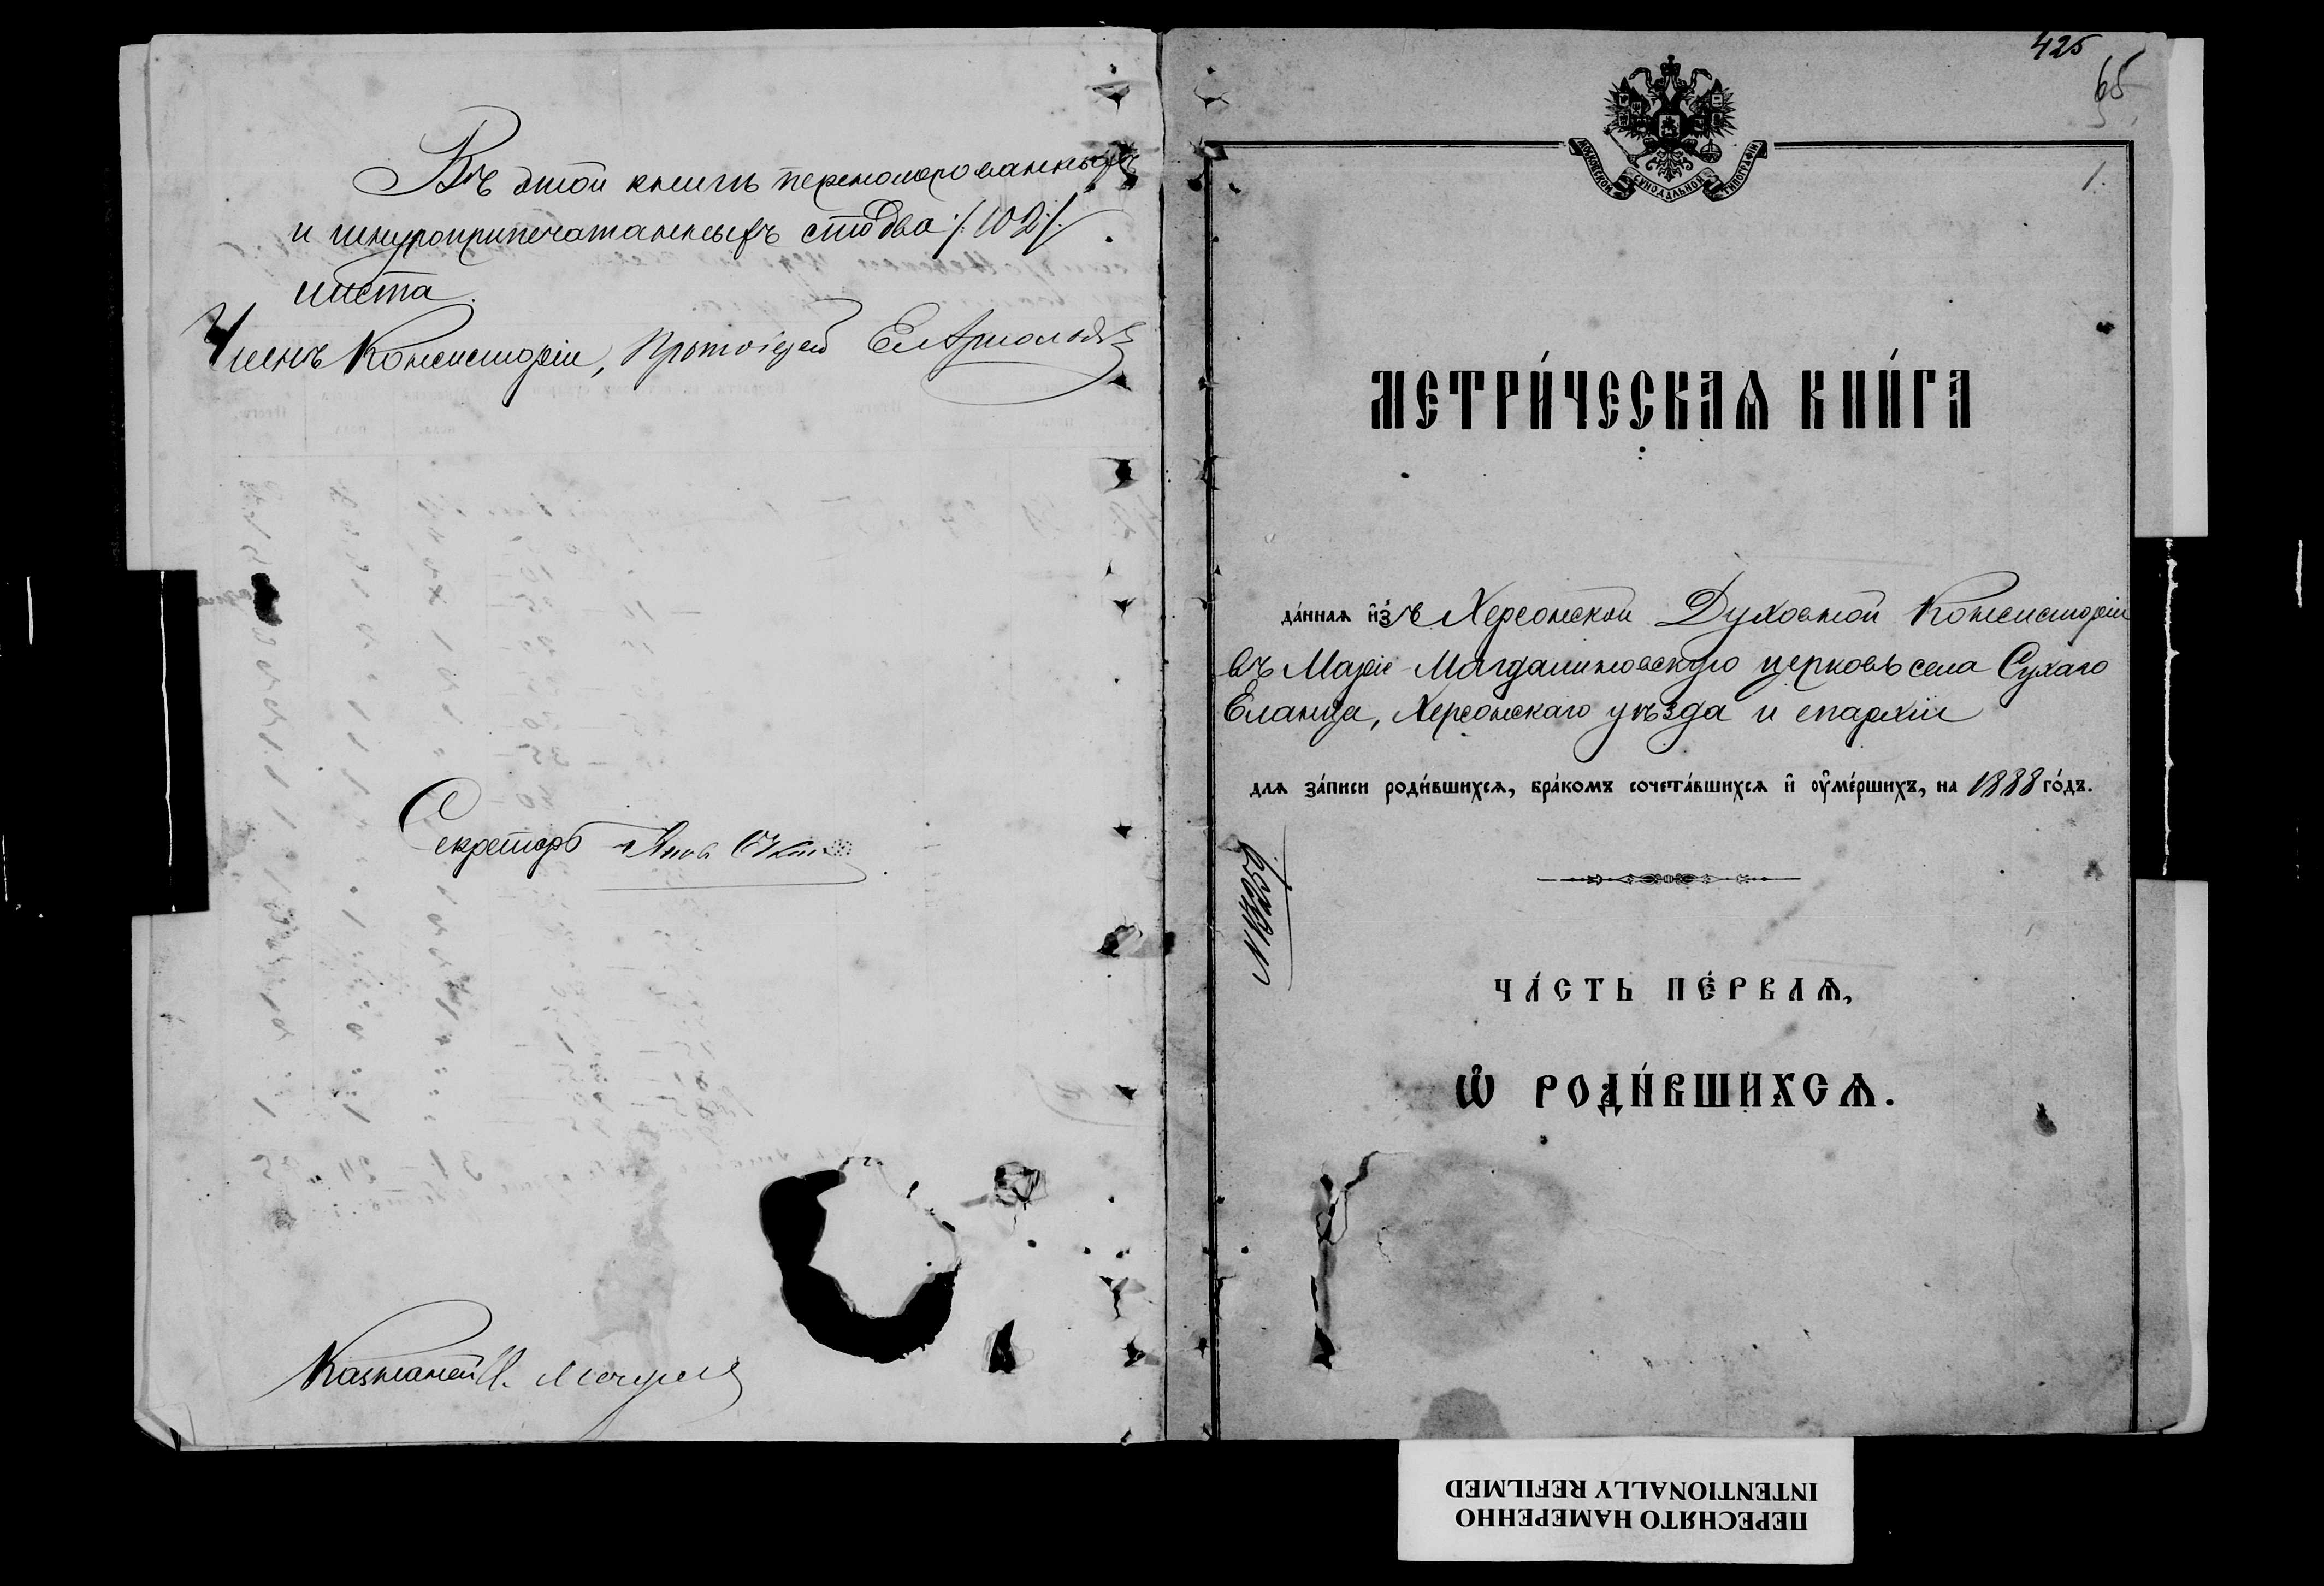 Въ этой книгѣ перенумерованныхъ
и шнуроприпечатанныхъ сто два /:102:/
листа.
Членъ Консисторіи, Протоіерей
Секретарь
Казначей
425
65
1.
МОСКОВСКОЙ СѴНОДАЛЬНОЙ ТИПОГРАФІИ
МЕТРИ́ЧЕСКАѦ КНИ́ГА
да́ннаѧ и҆зъ Херсонской Духовной Консисторіи
въ Маріе-Магдалиновскую церковь села Сухаго
Еланца, Херсонскаго уѣзда и епархіи
длѧ за́писи роди́вшихсѧ, бра́комъ сочета́вшихсѧ и҆ ᲂу҆ме́ршихъ, на 1888 го́дъ.
№ 13259
ЧА́СТЬ ПЕ́РВАѦ,
Ѡ҆ РОДИ́ВШИХСѦ.
ПЕРЕСНЯТО НАМЕРЕННО
INTENTIONALLY REFILMED